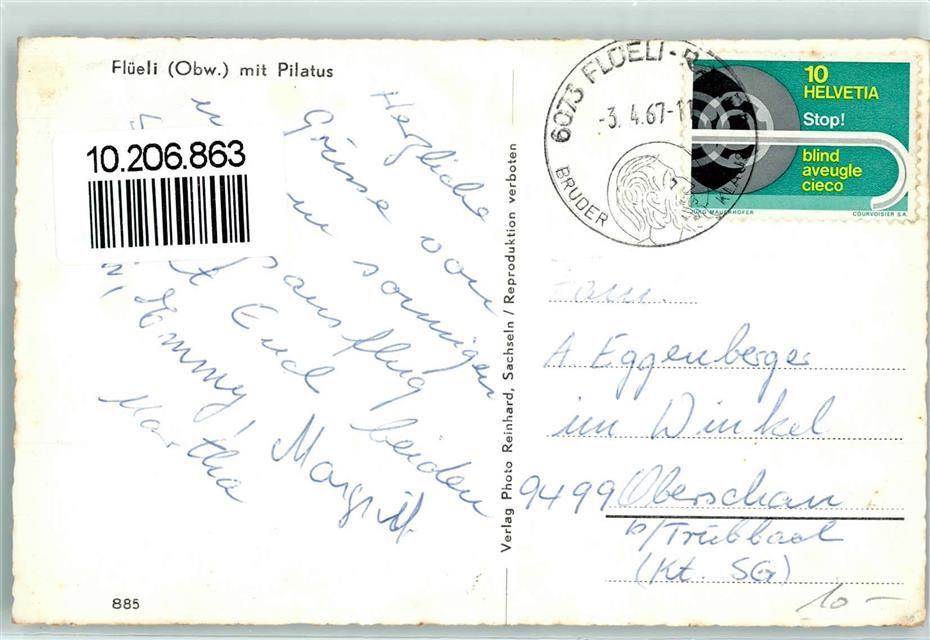 Flüeli (Obw.) mit Pilatus
10.206.863
Herzliche
Grüsse von
sonnigen
ausflug
Euch beiden
Emmy, Margrit
Martha
885
Verlag Photo Reinhard, Sachseln / Reproduktion verboten
6073 FLÜELI-R
-3. 4.67-11
BRUDER KLAUS
10
HELVETIA
Stop!
blind
aveugle
cieco
MAUERHOFER
COURVOISIER S.A.
Fam.
A. Eggenberger
im Winkel
9499 Oberschan
b/Trübbach
(Kt. SG)
10-